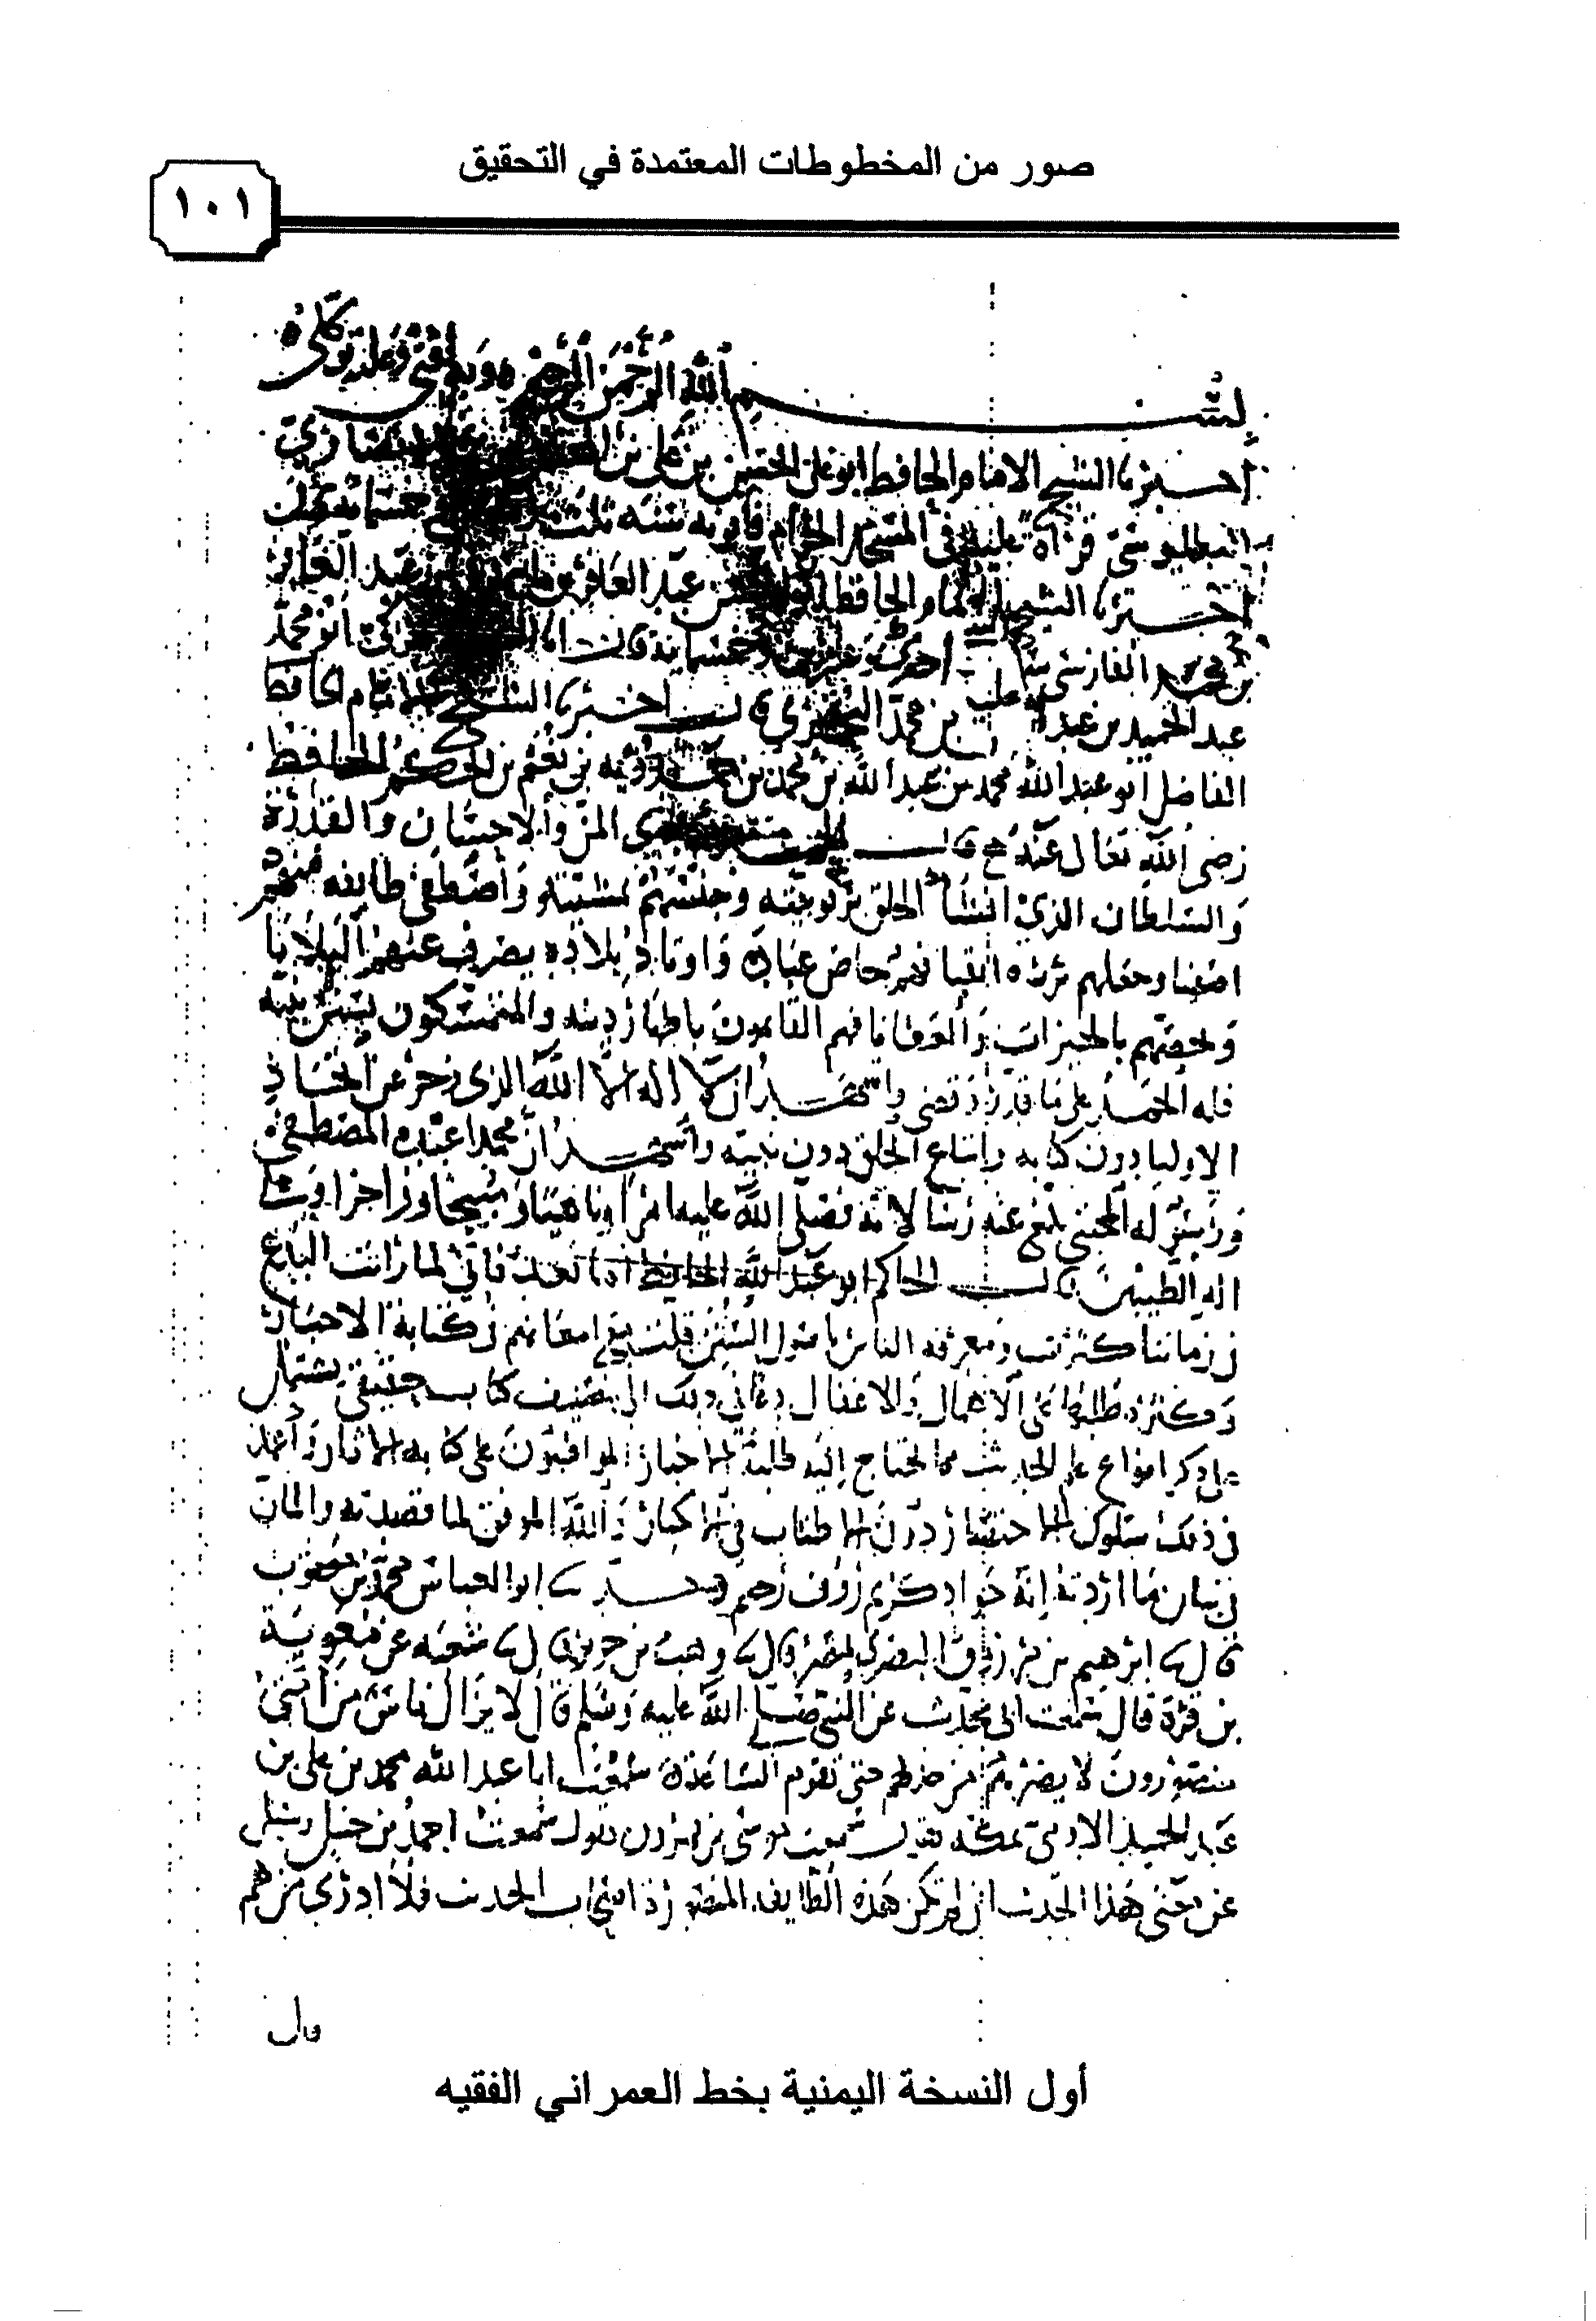 صور من المخطوطات المعتمدة في التحقيق
١٠١
بسم الله الرحمن الرحيم وبه ثقتي وعليه توكلي
أخبرنا الشيخ الامام الحافظ ابو علي الحسين بن علي بن الانصاري
البطليوسي قراة عليه في المسجد الحرام قال سنه ثلث وخمسمايه قال
اخبرنا الشيخ الامام الحافظ ابو الحسن عبد الغافر بن عبد الغافر
بن محمد الفارسي احدى وخمسمايه قال ابو محمد
عبد الحميد بن عبد بن محمد البحيري قال اخبرنا الشيخ الامام الحافظ
الفاضل ابو عبد الله محمد بن عبد الله بن محمد بن حمدويه بن نعيم بن الحكم الحافظ
رضي الله تعالى عنه قال الحمد لله ذي المن والاحسان والقدرة
والسلطان الذي انشا الخلق بربوبيته وجنسهم بمشيته واصطفى طايفه منهم
اصفيا وجعلهم بررة اتقيا فهم خاص عباده واوتاد بلاده يصرف عنهم البلايا
ويخصهم بالخيرات والعطايا فهم القايمون باظهار دينه والمتمسكون بسنن نبيه
فله الحمد على ما قدر وقضى واشهد ان لا اله الا الله الذي زجر عن اتخاذ
الاوليا دون كتابه واتباع الخلق دون نبيه واشهد ان محمدا عبده المصطفى
ورسوله المجتبى بلغ عنه رسالاته فصلى الله عليه امرا وناهيا ومبيحا وزاجرا وعلى
اله الطيبين قال الحاكم ابو عبد الله الحافظ اما بعد فاني لما رايت البدع
في زماننا كثرت ومعرفه الناس باصول السنن قلت مع امعانهم في كتابة الاخبار
وكثرة طلبها على الاهمال والاغفال دعاني ذلك الى تصنيف كتاب خفيف يشتمل
على ذكر انواع علم الحديث مما يحتاج اليه طلبة الاخبار المواظبون على كتابه الاثار واعتمد
في ذلك سلوك الاختصار دون الاطناب في الاكثار والله الموفق لما قصدته والمان
في بيان ما اردته انه جواد كريم رؤف رحيم حدثنا ابو العباس محمد بن يعقوب
قال ثنا ابرهيم بن مرزوق البصري بمصر قال ثنا وهب بن جرير قال ثنا شعبه عن معوية
بن قرة قال سمعت ابي يحدث عن النبي صلى الله عليه وسلم قال لا يزال ناس من امتي
منصورون لا يضرهم من خذلهم حتى تقوم الساعة سمعت ابا عبد الله محمد بن علي بن
عبد الحميد الادمي بمكه يقول سمعت موسى بن هرون يقول سمعت احمد بن حنبل وسئل
عن معنى هذا الحديث ان لم تكن هذه الطايفه المنصورة اصحاب الحديث فلا ادري من هم
قال
أول النسخة اليمنية بخط العمراني الفقيه